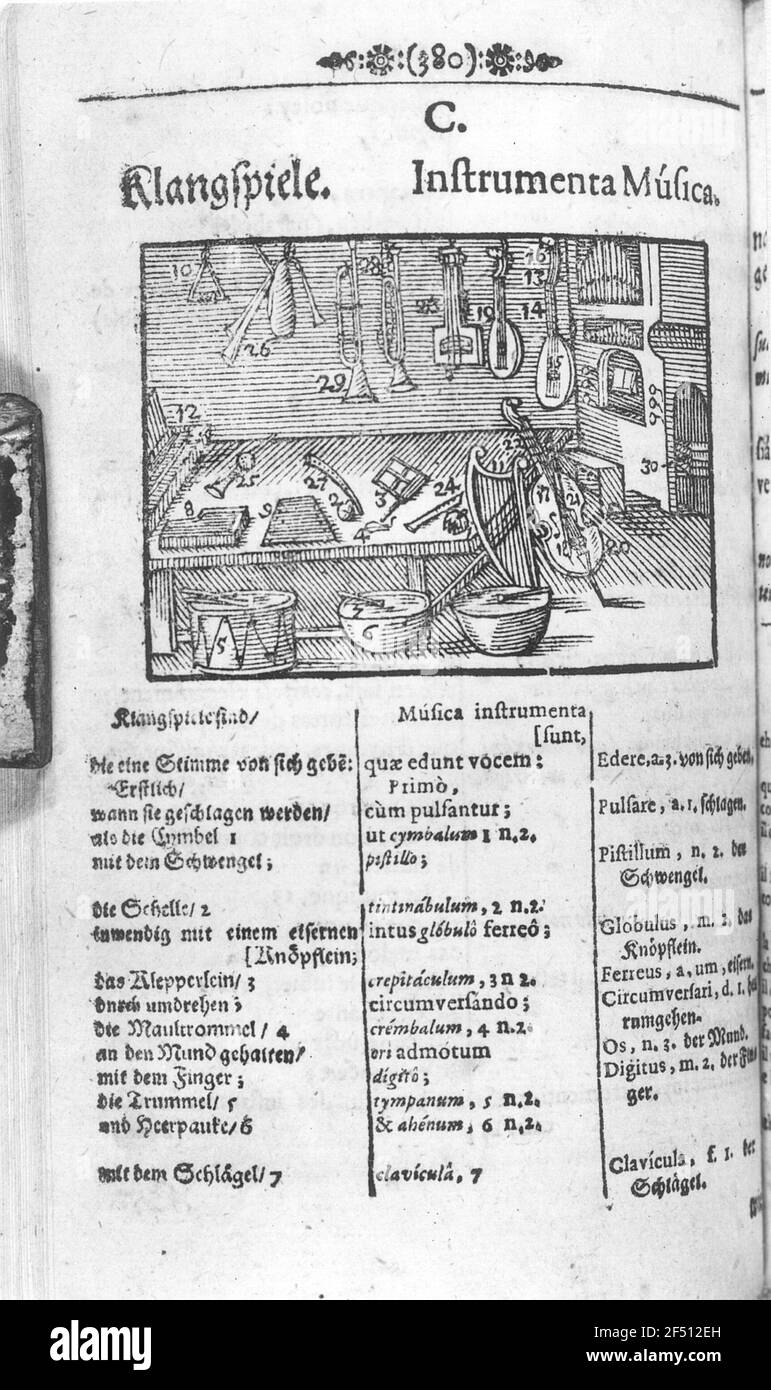 (380)
C.
Klangſpiele. Inſtrumenta Múſica.
10
26
28
29
23
19
16
13
14
15
12
25
27
2
3
4
24
8
9
11
22
17
21
18
20
30
5
7
6
Klangſpiele ſind/
die eine Stimme von ſich gebē:
Erſtlich/
wann ſie geſchlagen werden/
als die Cymbel 1
mit dem Schwengel;
die Schelle/ 2
inwendig mit einem eiſernen
[Knöpflein;
das Klepperlein/ 3
durch umdrehen;
die Maultrommel/ 4
an den Mund gehalten/
mit dem Finger;
die Trummel/ 5
und Heerpauke/ 6
mit dem Schlägel/ 7
Múſica inſtrumenta
[ſunt,
quæ edunt vocem;
Primò,
cùm pulſantur;
ut cymbalum 1 n.2.
piſtillo;
tintinábulum, 2 n.2.
intus glóbulô ferreô;
crepitáculum, 3 n 2.
circumverſándo;
crémbalum, 4 n.2.
ori admotum
dígitô;
tympanum, 5 n.2.
& ahénum, 6 n.2.
clavículâ, 7
Edere, a. 3. von ſich geben.
Pulſare, a. 1. ſchlagen.
Piſtillum, n. 2. der
Schwengel.
Glóbulus, m. 2. das
Knöpflein.
Ferreus, a, um, eiſern.
Circumverſari, d. 1.
rumgehen.
Os, n. 3. der Mund.
Digitus, m. 2. der Fin
ger.
Clavícula, f. 1. der
Schlägel.
alamy
Image ID: 2F512EH
www.alamy.com